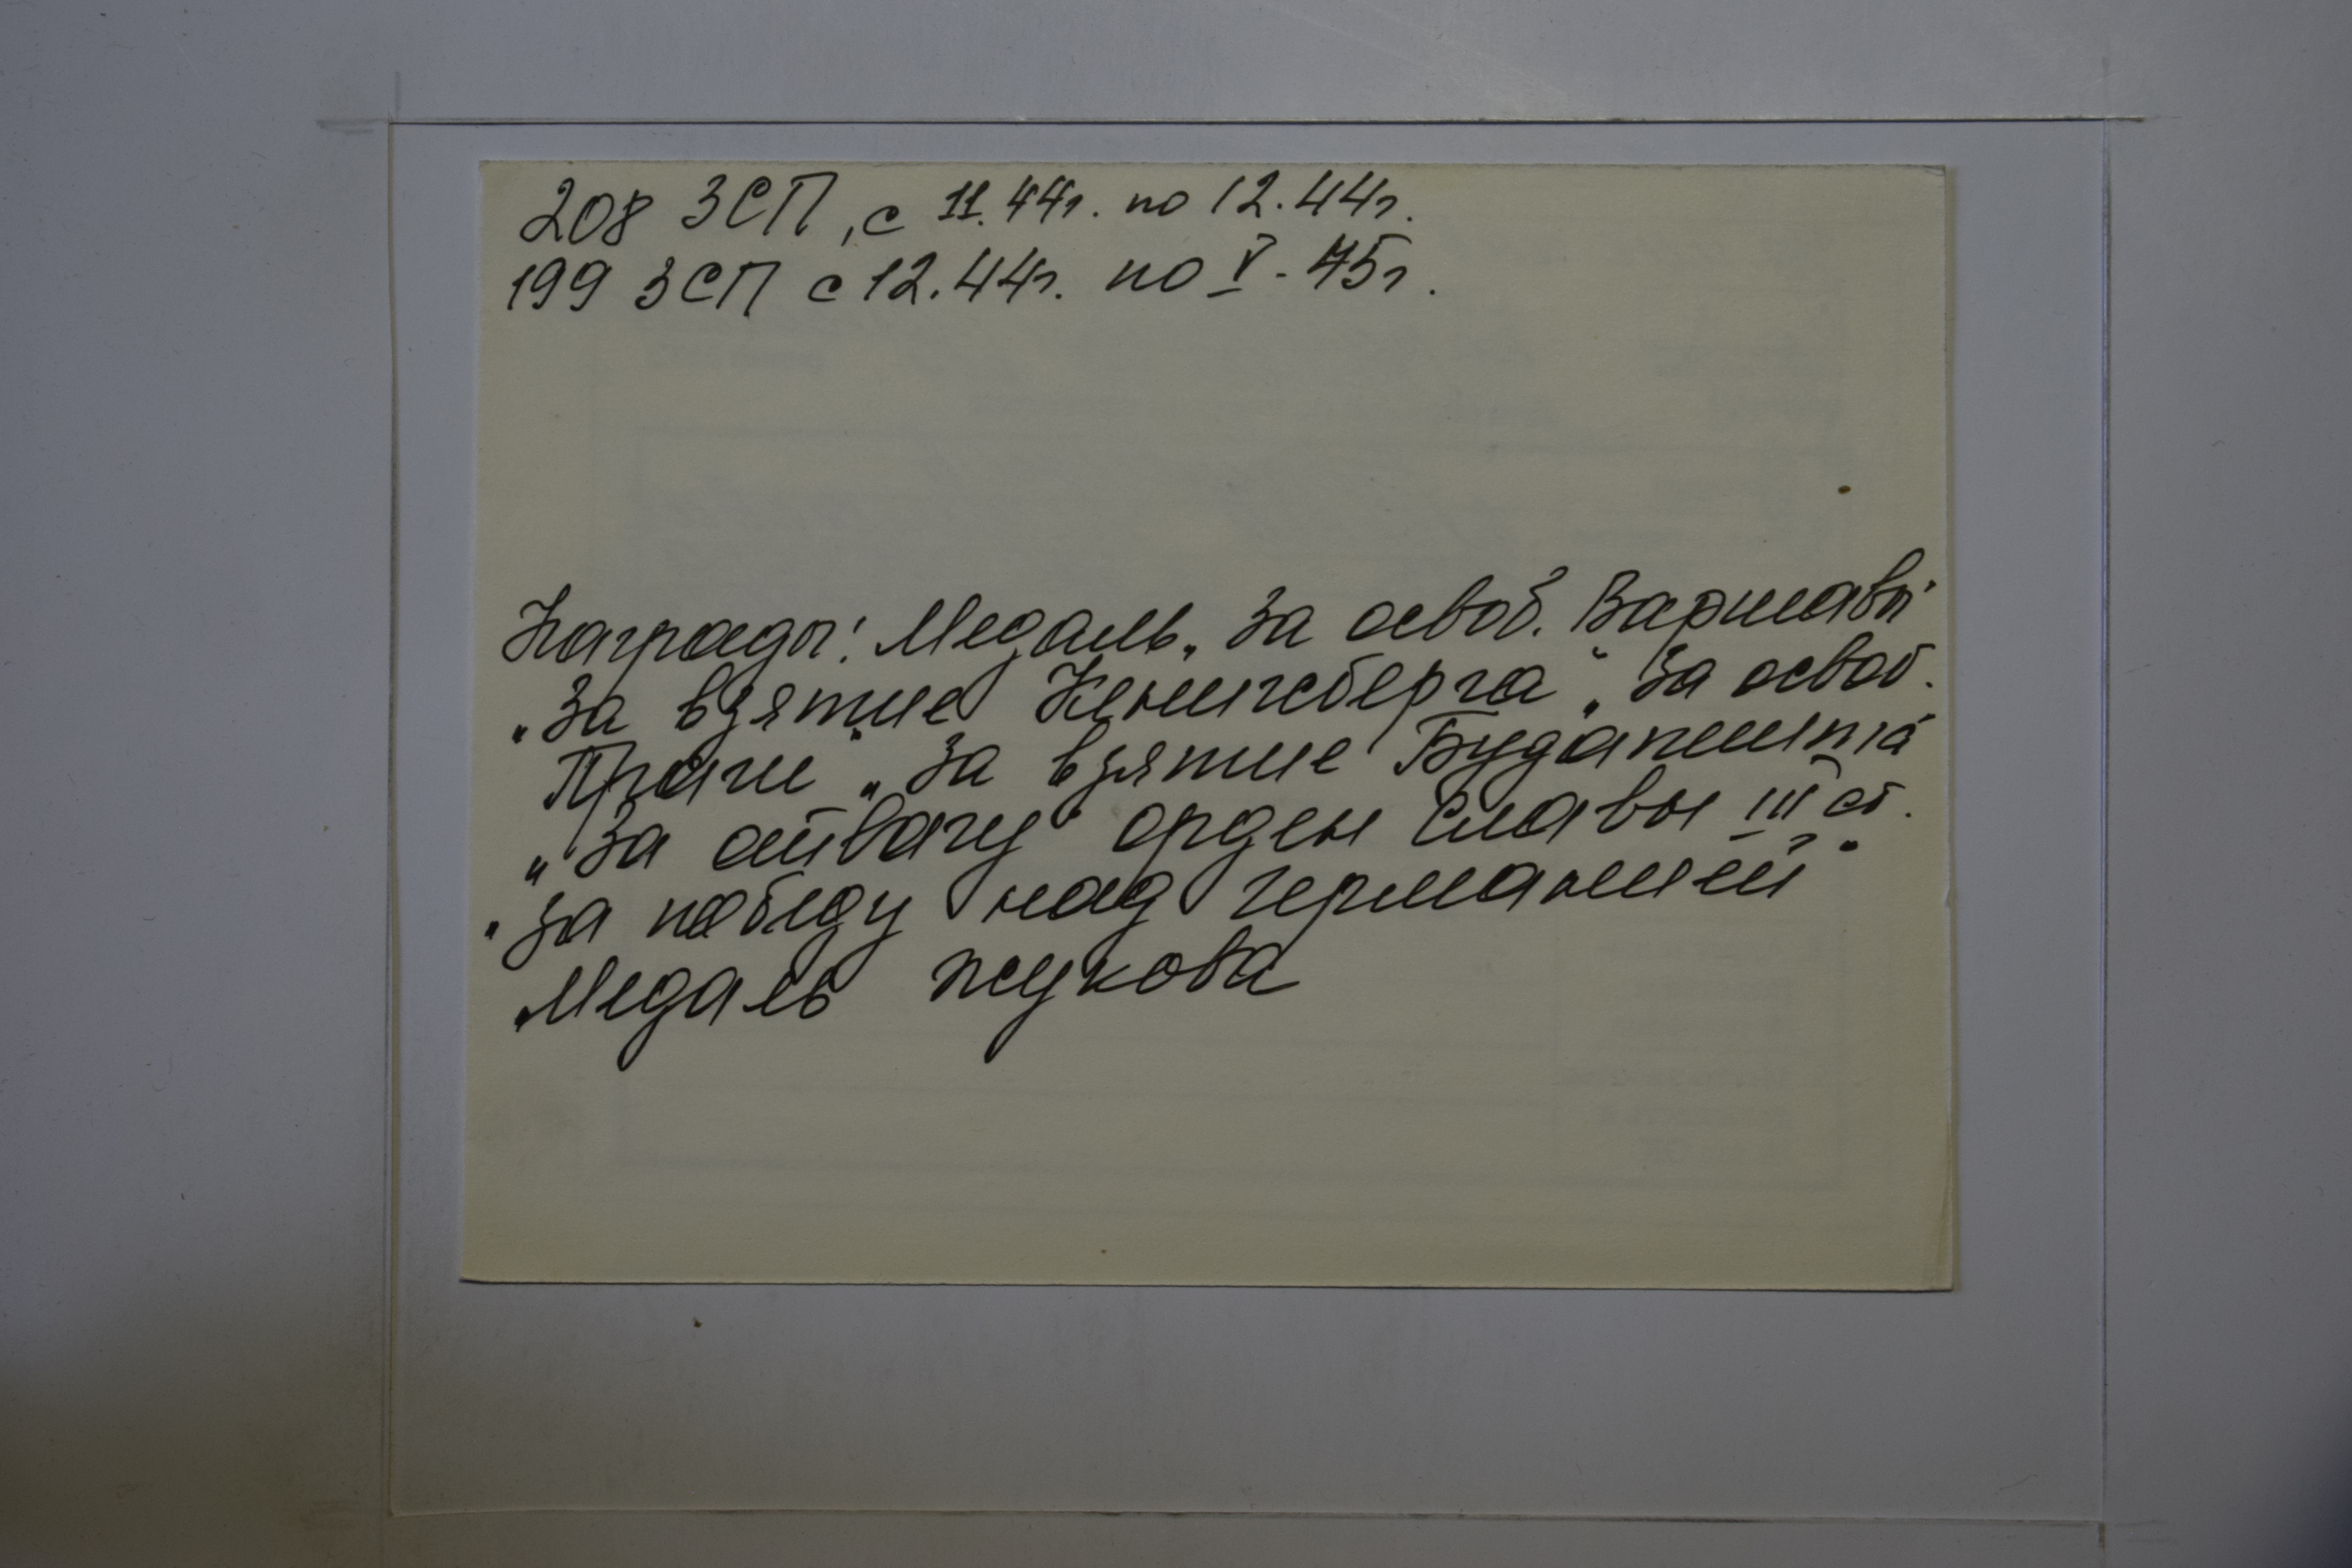 208 ЗСП, с 11.44г. по 12.44г.
199 ЗСП с 12.44г. по V-45г.
Награды: Медаль „За освоб. Варшавы"
„За взятие Кенигсберга" „За освоб.
Праги" „За взятие Будапешта"
„За отвагу" орден Славы III ст.
„За победу над германией"
„Медаль жукова